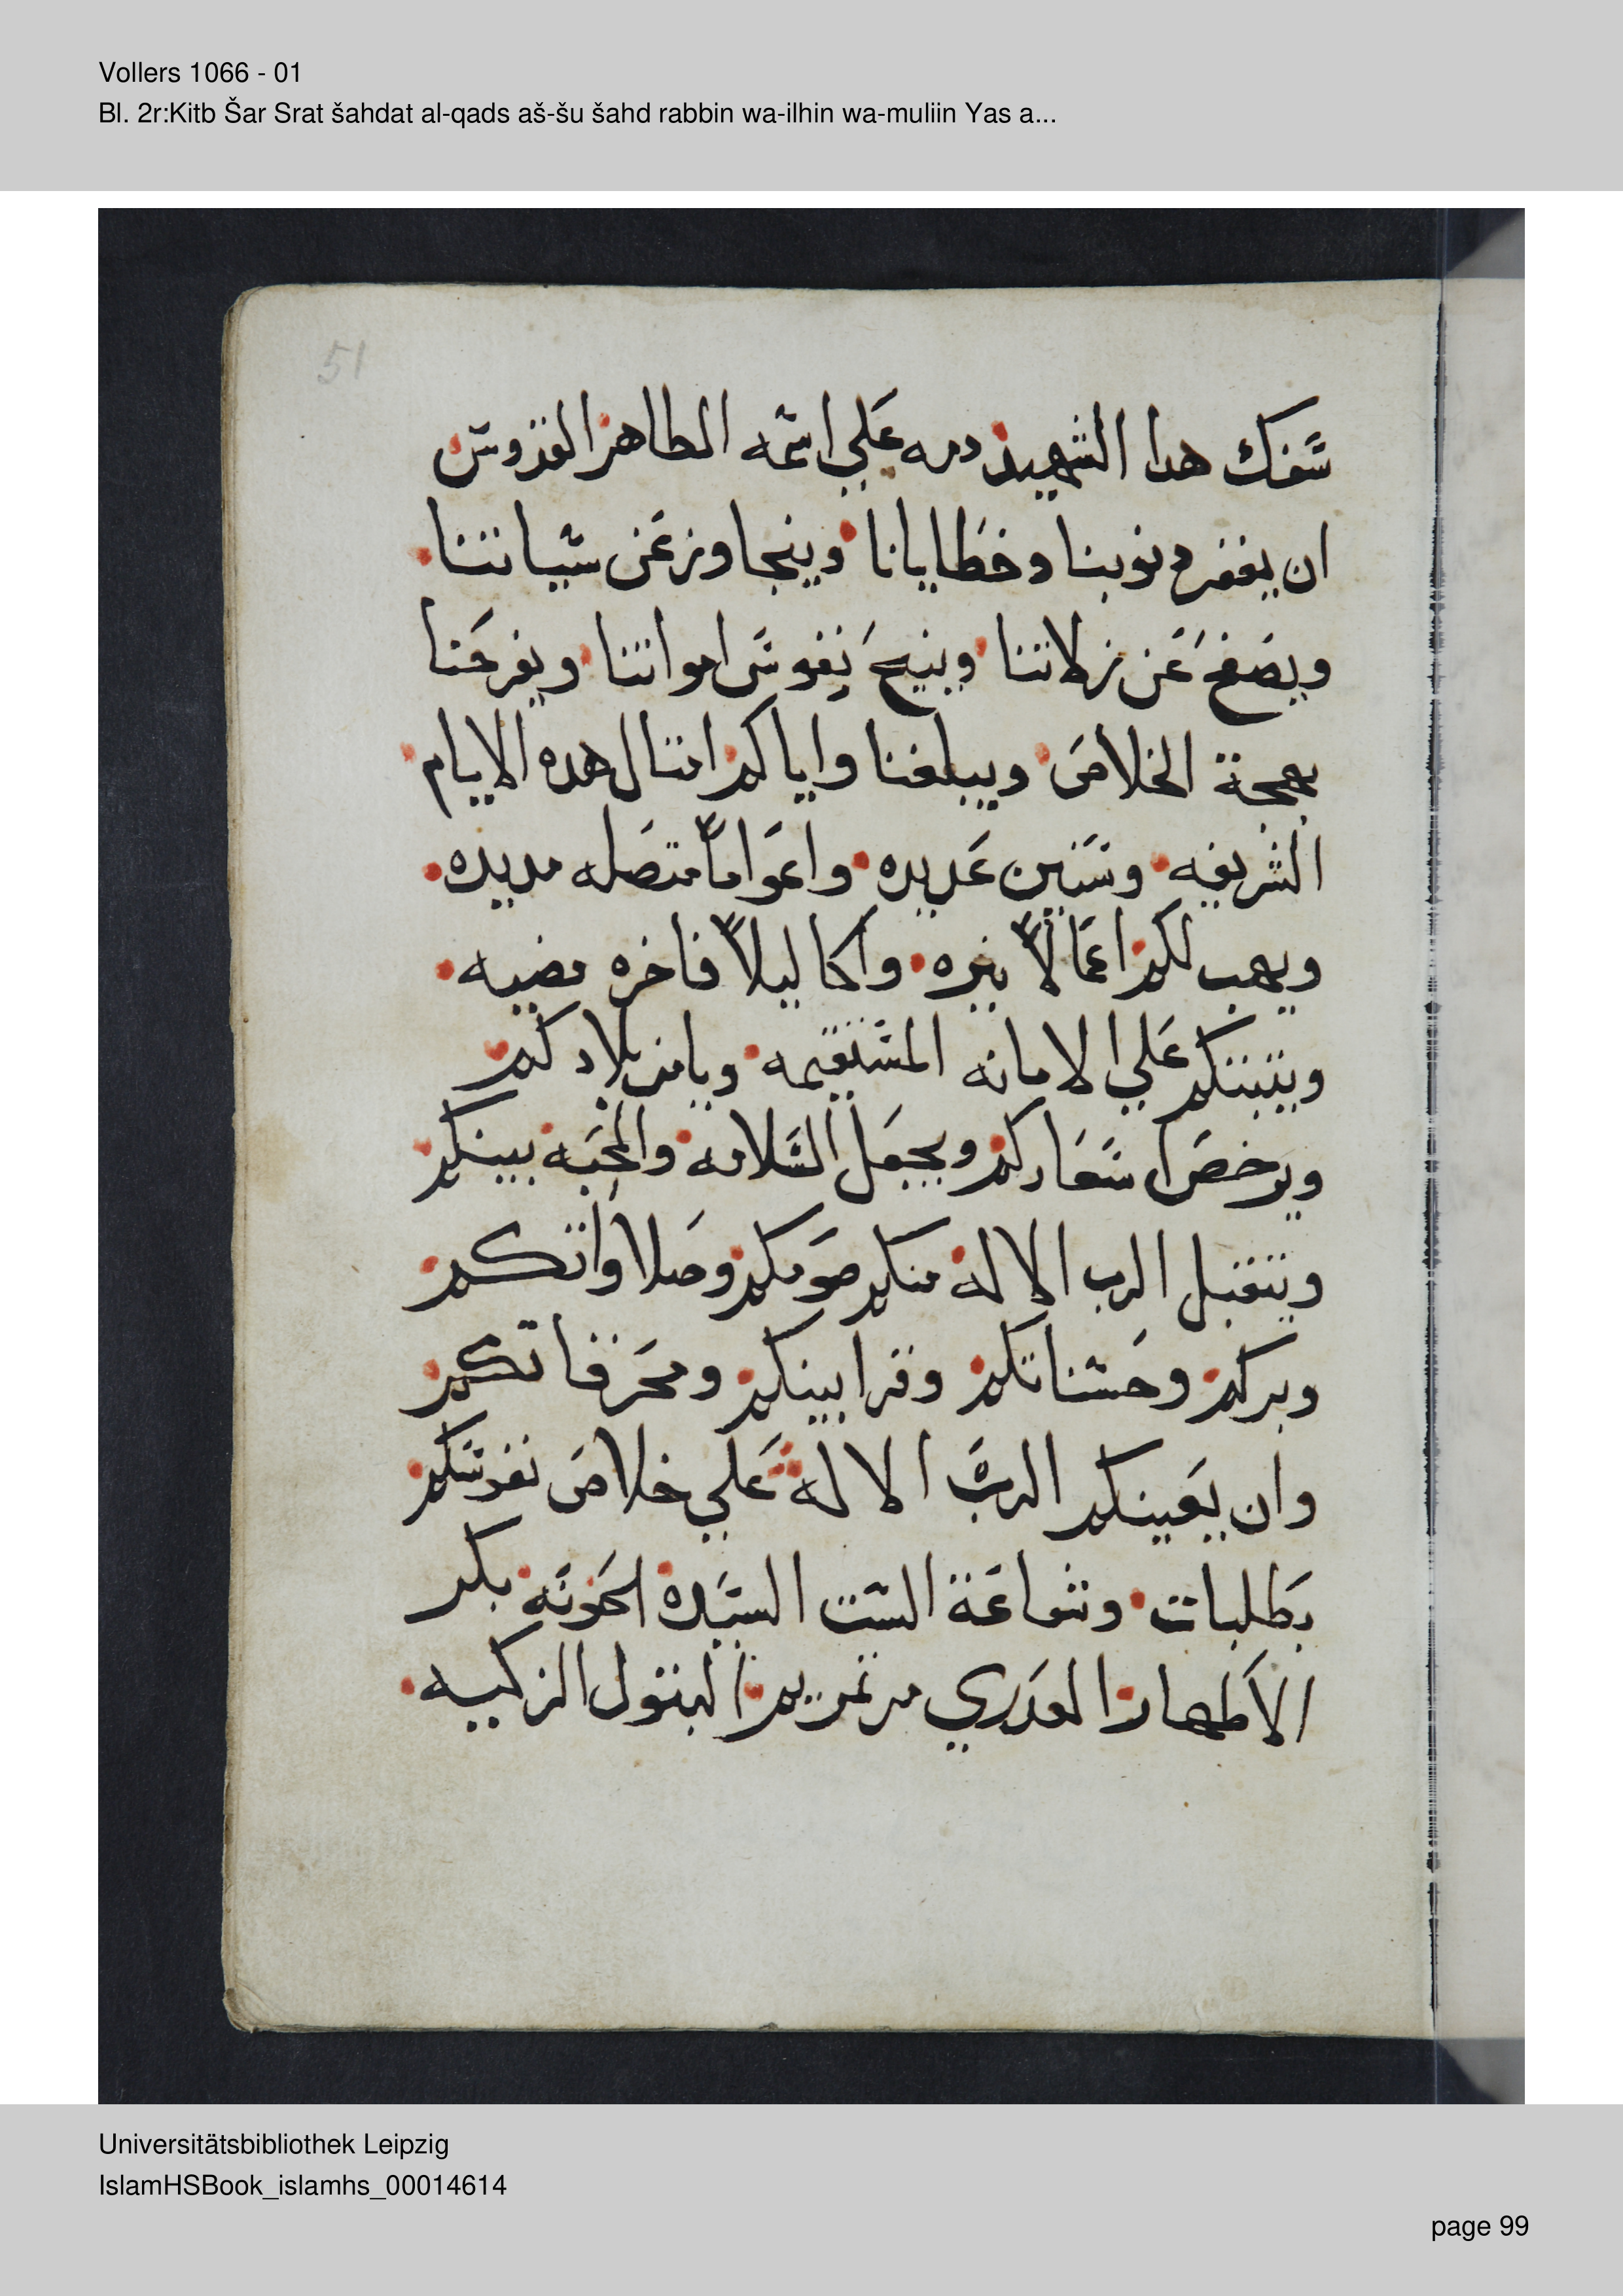 Vollers 1066 - 01
Bl. 2r:Kitb Šar Srat šahdat al-qads aš-šu šahd rabbin wa-ilhin wa-muliin Yas a...
51
سفك هدا الشهيد دمه علي اسمه الطاهر القدوس
ان يغفر دنوبنا وخطايانا ويتجاوز عن سياتنا
ويصفح عن زلاتنا وينيح نفوس امواتنا ويفرحنا
بهجة الخلاص ويبلغنا واياكم امتال هده الايام
الشريفه وسنين عديده واعواماً متصله مديده
ويهب لكم اعمالاً نيره واكاليلاً فاخره مضيه
ويتبتكم علي الامانه المستقيمه ويامن بلادكم
ويرخص اسعاركم ويجعل السلامه والمحبه بينكم
ويتقبل الرب الاله منكم صومكم وصلاواتكم
وبركم وحسناتكم وقرابينكم ومحرقاتكم
وان يعينكم الرب الاله علي خلاص نفوسكم
بطلبات وشفاعة الست السيده الحنونه بكر
الاطهار العدري مرتمريم البتول الزكييه
Universitätsbibliothek Leipzig
IslamHSBook_islamhs_00014614
page 99